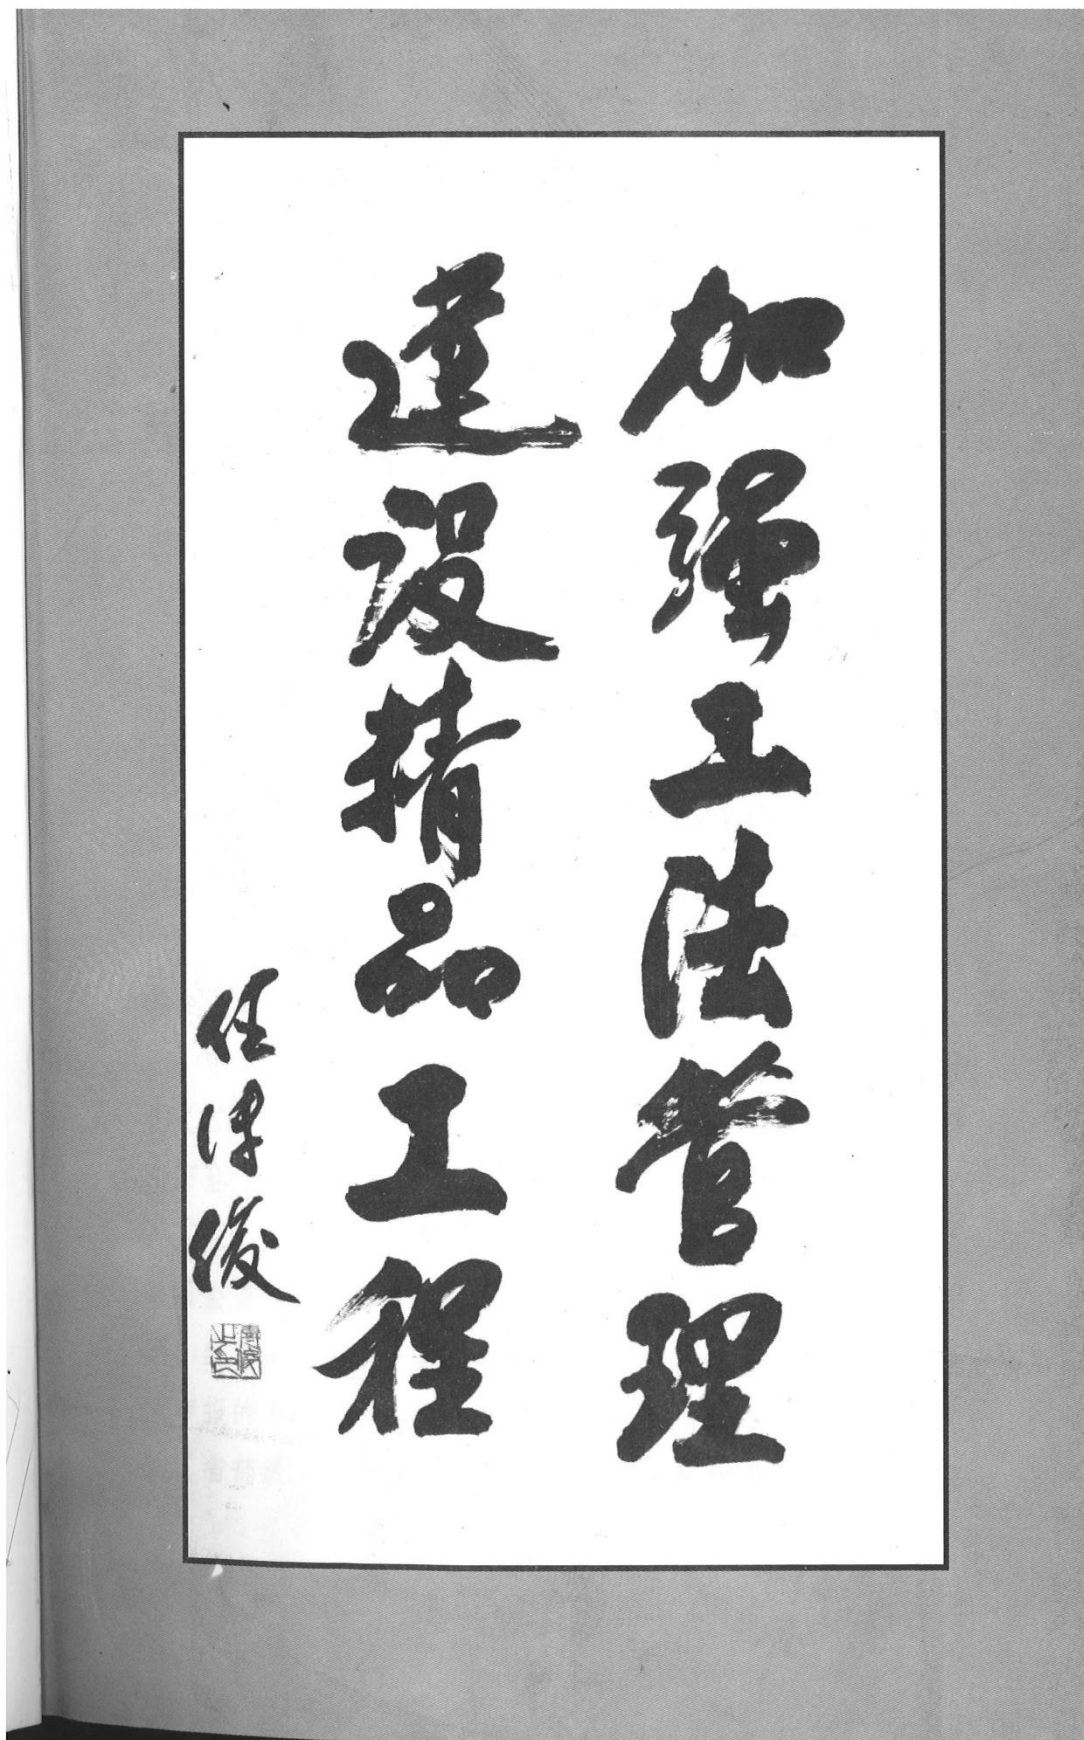 加强工法管理
建设精品工程
任传俊